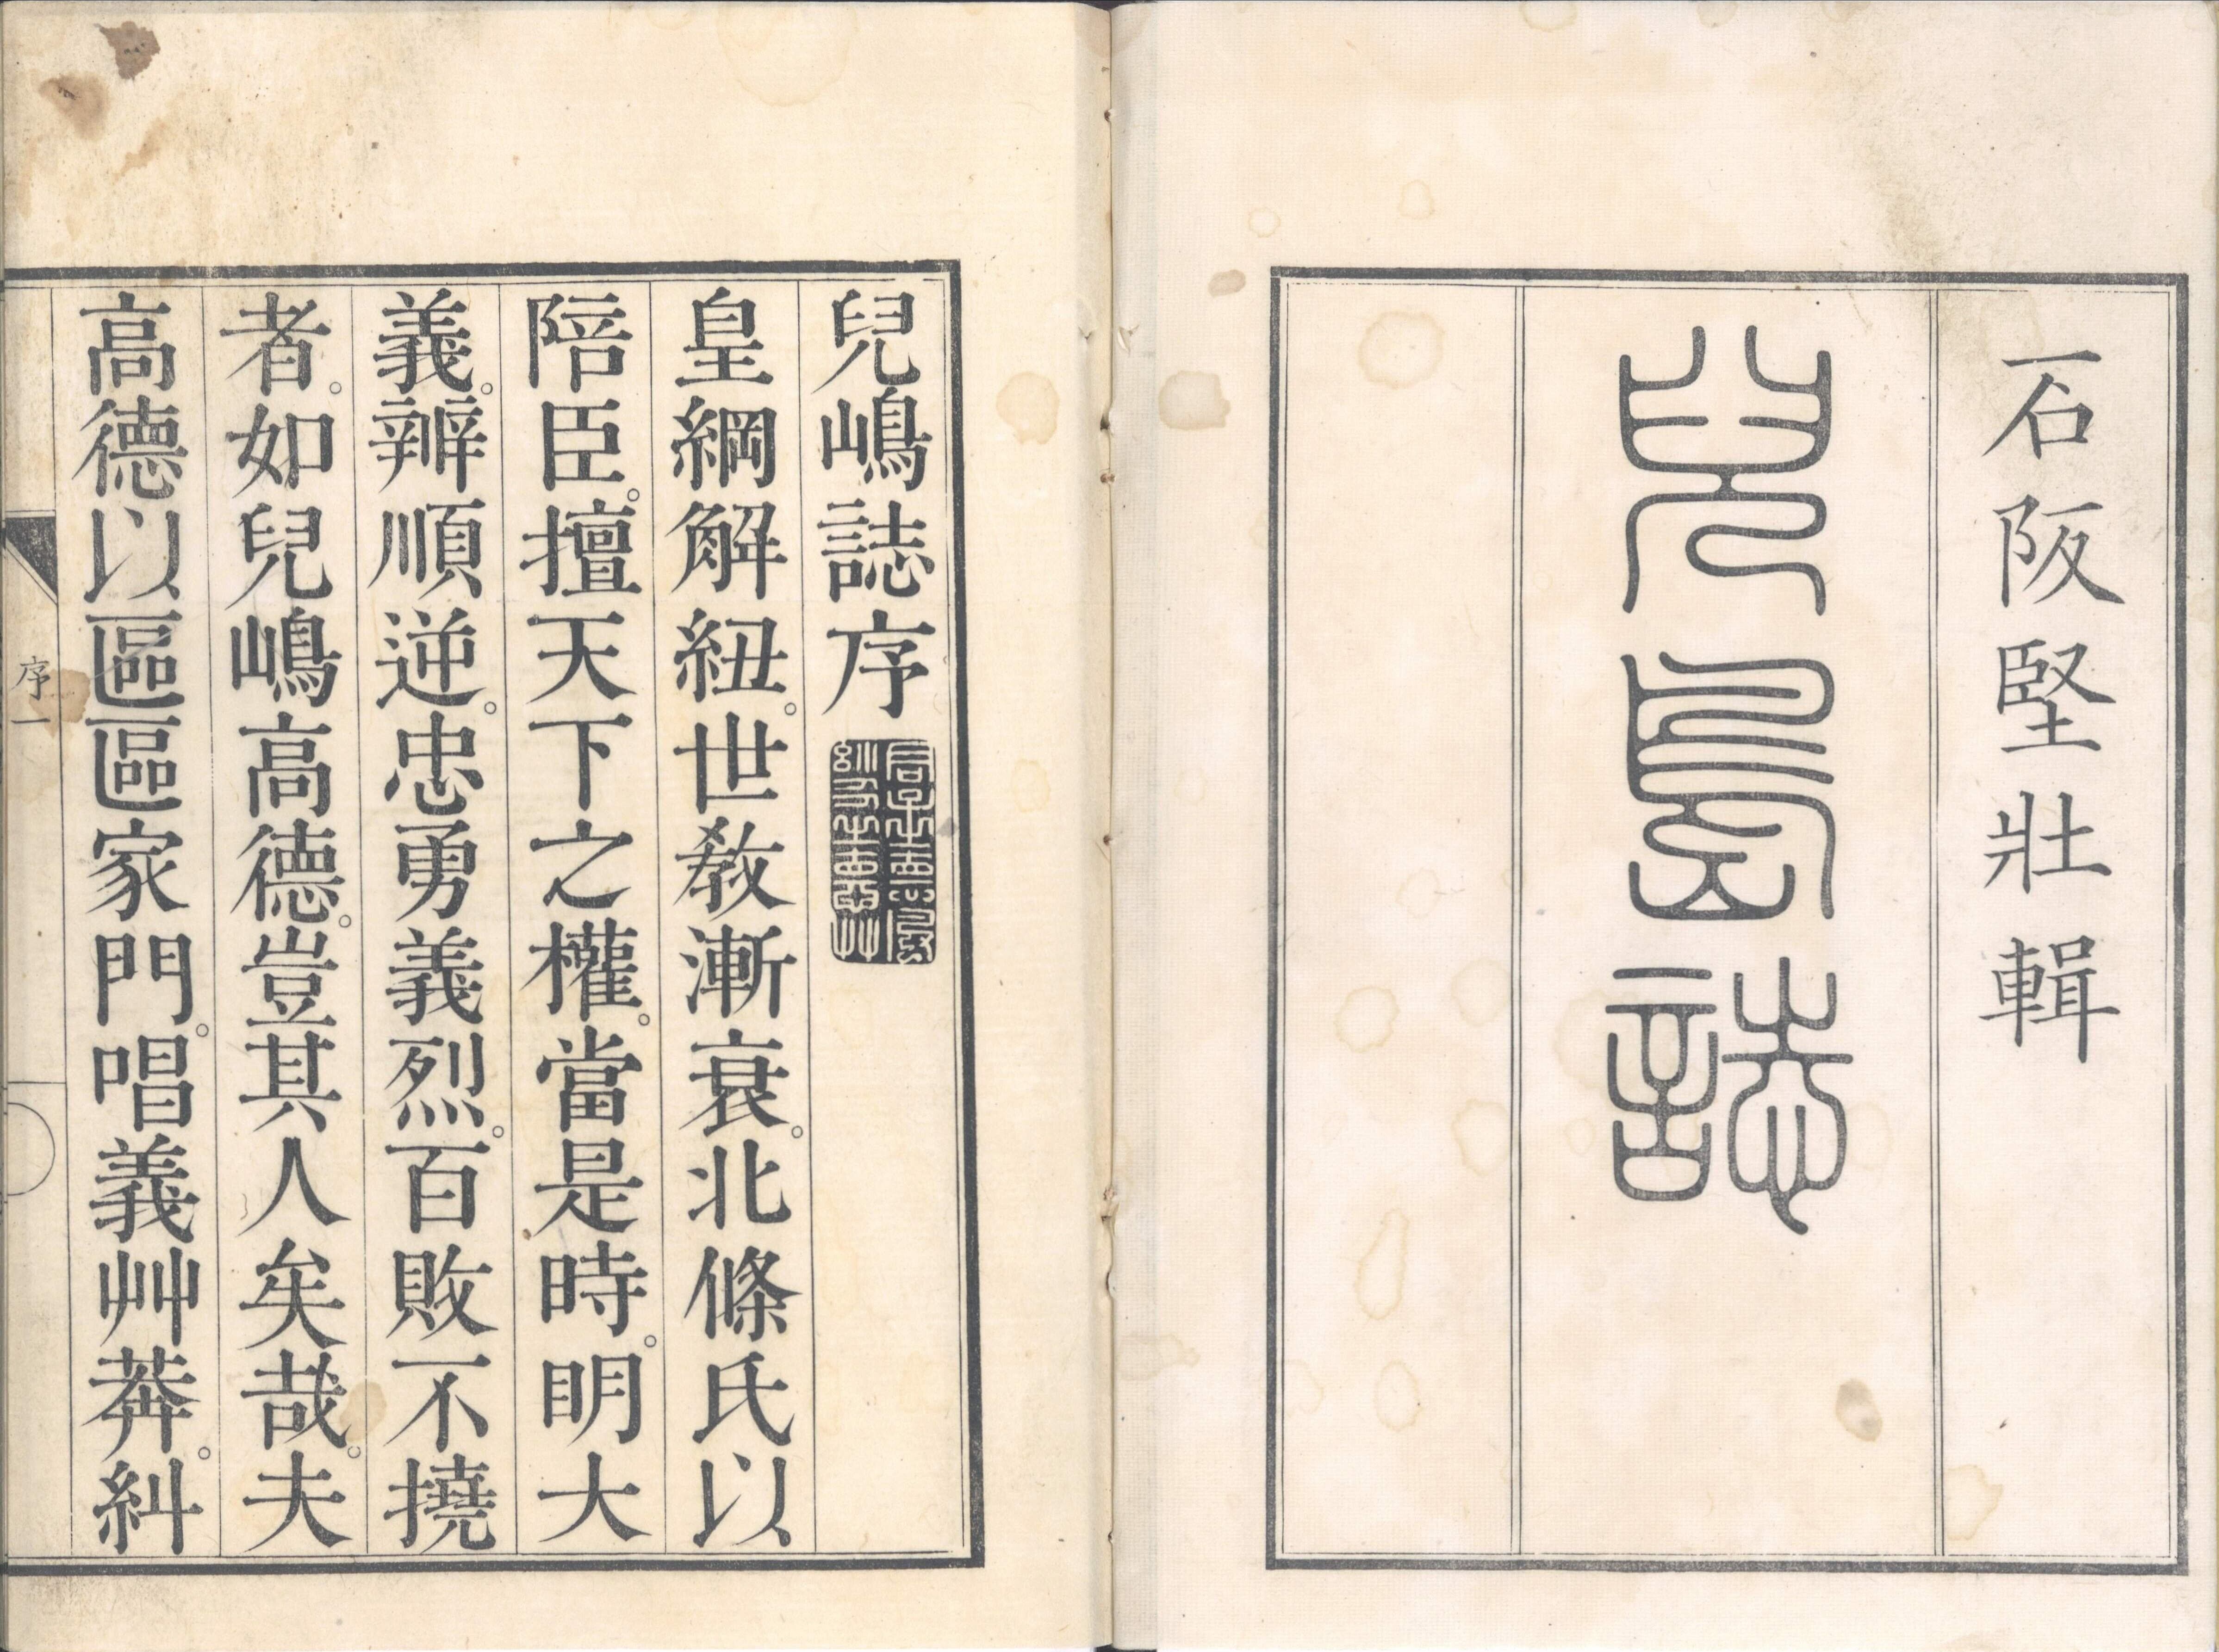 石阪堅壯輯
兒島誌
兒嶋誌序
皇綱解紐。世教漸衰。北條氏以
陪臣。擅天下之權。當是時。明大
義。辨順逆。忠勇義烈。百敗不撓
者。如兒嶋高德。豈其人矣哉。夫
高德以區區家門。唱義艸莽。糾
序一